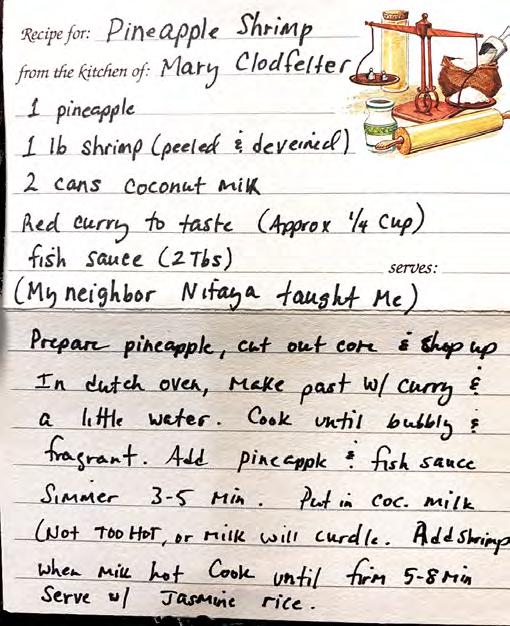 Recipe for: Pineapple Shrimp
from the kitchen of: Mary Clodfelter
1 pineapple
1 lb shrimp (peeled & deveined)
2 cans coconut milk
Red curry to taste (Approx 1/4 cup)
fish sauce (2 Tbs)
serves:
(My neighbor Nitaya taught me)
Prepare pineapple, cut out core & chop up
In dutch oven, make past w/ curry &
a little water. Cook until bubbly &
fragrant. Add pineapple & fish sauce
Simmer 3-5 min. Put in coc. milk
(Not TOO HOT, or milk will curdle. Add shrimp
when milk hot Cook until firm 5-8 min
Serve w/ Jasmine rice.